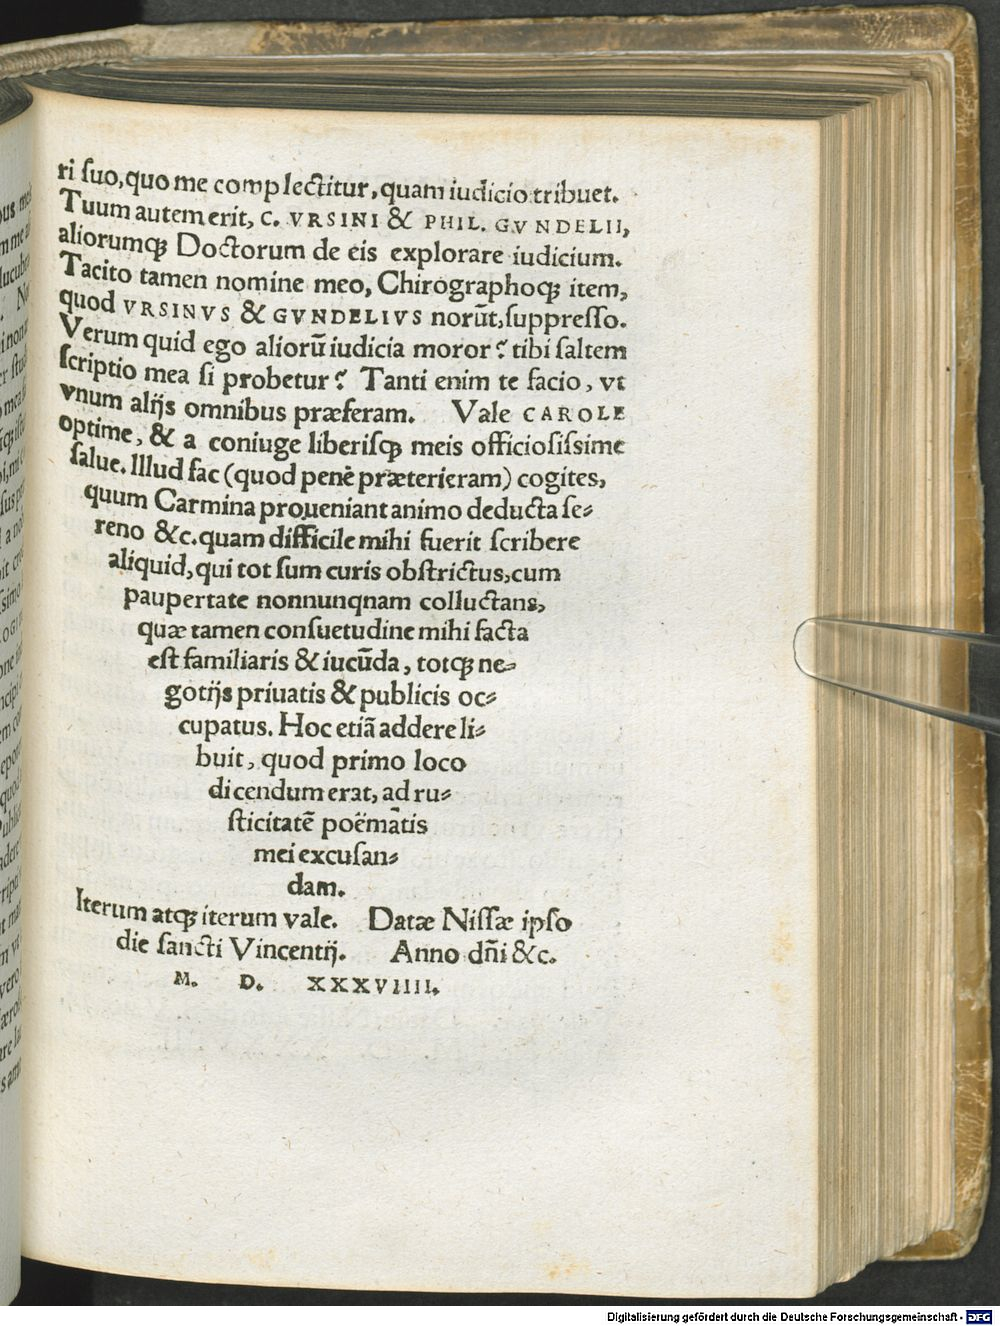 ri ſuo, quo me complectitur, quam iudicio tribuet.
Tuum autem erit, C. VRSINI & PHIL. GVNDELII,
aliorumqꝫ Doctorum de eis explorare iudicium.
Tacito tamen nomine meo, Chirographoqꝫ item,
quod VRSINVS & GVNDELIVS norūt, ſuppreſſo.
Verum quid ego aliorū iudicia moror? tibi ſaltem
ſcriptio mea ſi probetur? Tanti enim te facio, vt
vnum alijs omnibus præferam. Vale CAROLE
optime, & a coniuge liberiſqꝫ meis officioſiſsime
ſalue. Illud fac (quod penè præterieram) cogites,
quum Carmina proueniant animo deducta ſe⸗
reno &c. quam difficile mihi fuerit ſcribere
aliquid, qui tot ſum curis obſtrictus, cum
paupertate nonnunqnam colluctans,
quæ tamen conſuetudine mihi facta
eſt familiaris & iucūda, totqꝫ ne⸗
gotijs priuatis & publicis oc⸗
cupatus. Hoc etiā addere li⸗
buit, quod primo loco
dicendum erat, ad ru⸗
ſticitatē poëmatis
mei excuſan⸗
dam.
Iterum atqꝫ iterum vale. Datæ Niſſæ ipſo
die ſancti Vincentij. Anno dñi &c.
M. D. XXXVIIII.
Digitalisierung gefördert durch die Deutsche Forschungsgemeinschaft - DFG